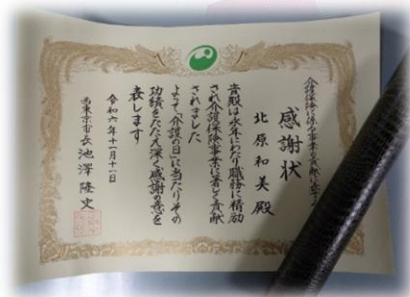 介護保険に係る事業の貢献に
感謝状
北原和美殿
貴殿は永年にわたり職務に精励
され介護保険事業に著しく貢献
されました
よって介護の日に当たりその
功績をたたえ深く感謝の意を
表します
令和六年十一月十一日
西東京市長池澤隆史